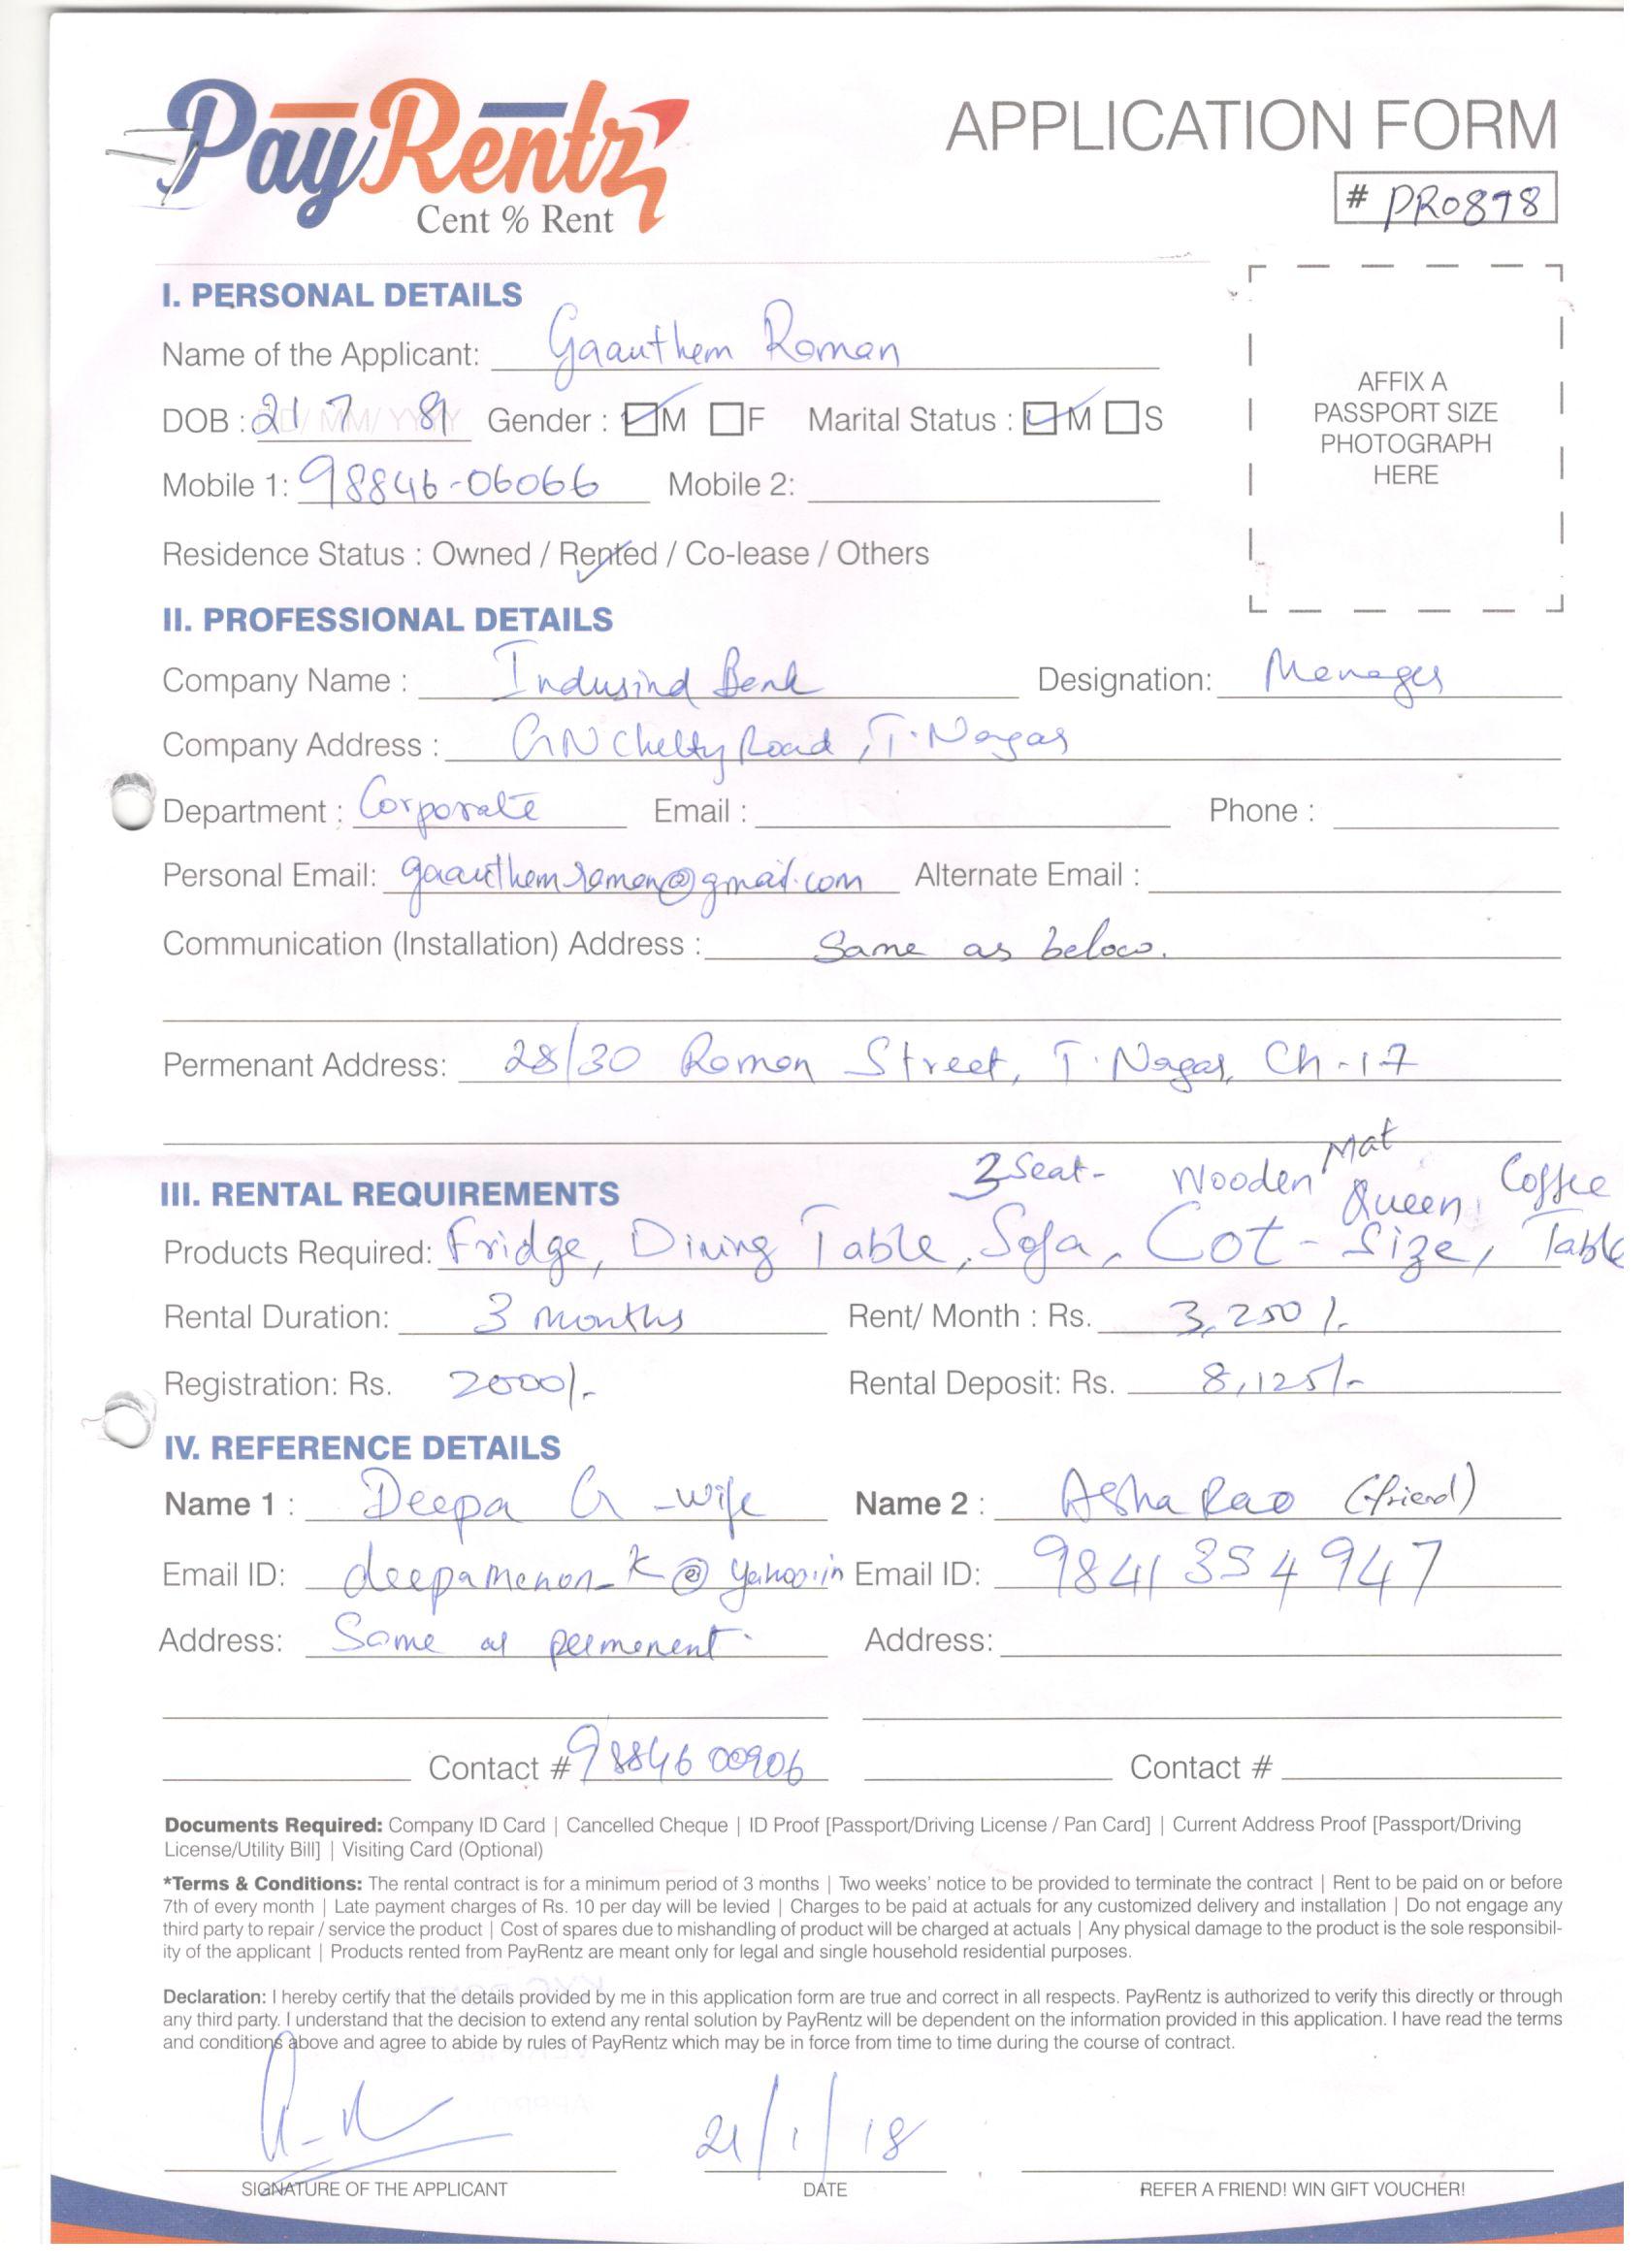 PayRentz
Cent % Rent
APPLICATION FORM
# PR0878
I. PERSONAL DETAILS
Name of the Applicant: Gaauthem Raman
DOB : 21 7 81 Gender : M F Marital Status : M S
Mobile 1: 98846-06066 Mobile 2:
Residence Status : Owned / Rented / Co-lease / Others
AFFIX A
PASSPORT SIZE
PHOTOGRAPH
HERE
II. PROFESSIONAL DETAILS
Company Name : Indusind Bank Designation: Manager
Company Address : GN Chetty Road, T. Nagar
Department : Corporate Email : Phone :
Personal Email: gaauthemraman@gmail.com Alternate Email :
Communication (Installation) Address : Same as below.
Permenant Address: 28/30 Raman Street, T. Nagar, Ch-17
3 Seat- Wooden Mat Queen Coffee
III. RENTAL REQUIREMENTS
Products Required: Fridge, Dining Table, Sofa, Cot - Size, Table
Rental Duration: 3 months Rent/ Month : Rs. 3,250/-
Registration: Rs. 2000/- Rental Deposit: Rs. 8,125/-
IV. REFERENCE DETAILS
Name 1 : Deepa G - wife Name 2 : Asha Rao (friend)
Email ID: deepamenon_k@yahoo.in Email ID: 9841354947
Address: Same as permenent. Address:
Contact # 9884600906 Contact #
Documents Required: Company ID Card | Cancelled Cheque | ID Proof [Passport/Driving License / Pan Card] | Current Address Proof [Passport/Driving
License/Utility Bill] | Visiting Card (Optional)
*Terms & Conditions: The rental contract is for a minimum period of 3 months | Two weeks' notice to be provided to terminate the contract | Rent to be paid on or before
7th of every month | Late payment charges of Rs. 10 per day will be levied | Charges to be paid at actuals for any customized delivery and installation | Do not engage any
third party to repair / service the product | Cost of spares due to mishandling of product will be charged at actuals | Any physical damage to the product is the sole responsibil-
ity of the applicant | Products rented from PayRentz are meant only for legal and single household residential purposes.
Declaration: I hereby certify that the details provided by me in this application form are true and correct in all respects. PayRentz is authorized to verify this directly or through
any third party. I understand that the decision to extend any rental solution by PayRentz will be dependent on the information provided in this application. I have read the terms
and conditions above and agree to abide by rules of PayRentz which may be in force from time to time during the course of contract.
21/1/18
SIGNATURE OF THE APPLICANT DATE REFER A FRIEND! WIN GIFT VOUCHER!